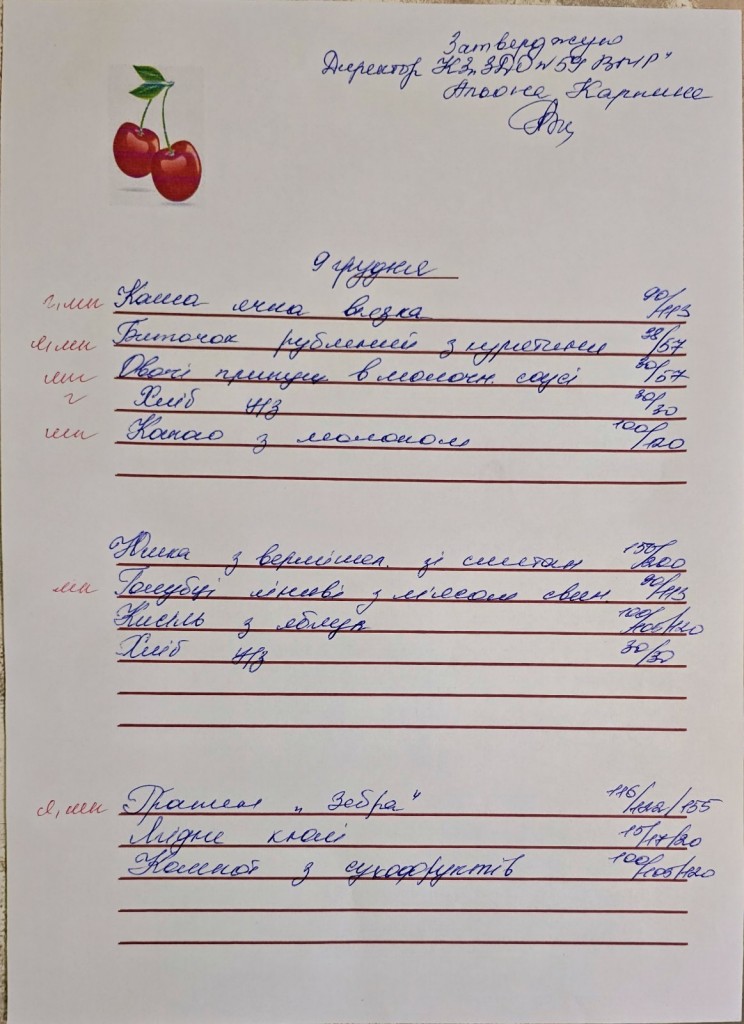 Затверджую
Директор КЗ "ЗДО № 59 ВМР"
Альона Карпина
9 грудня
г, мп Каша ячна в'язка 90/113
я, мп Биточок рублений з курятини 38/57
мп Овочі припущ. в молочн. соусі 30/57
г Хліб ЖЗ 30/30
мп Какао з молоком 100/120
Юшка з вермішел. зі сметан 150/200
мп Голубці ліниві з м'ясом свин. 90/113
Кисіль з яблук 100/105/120
Хліб ЖЗ 30/30
я, мп "Зебра" 116/122/155
Ягідне кюлі 15/17/20
Компот з сухофруктів 100/105/120